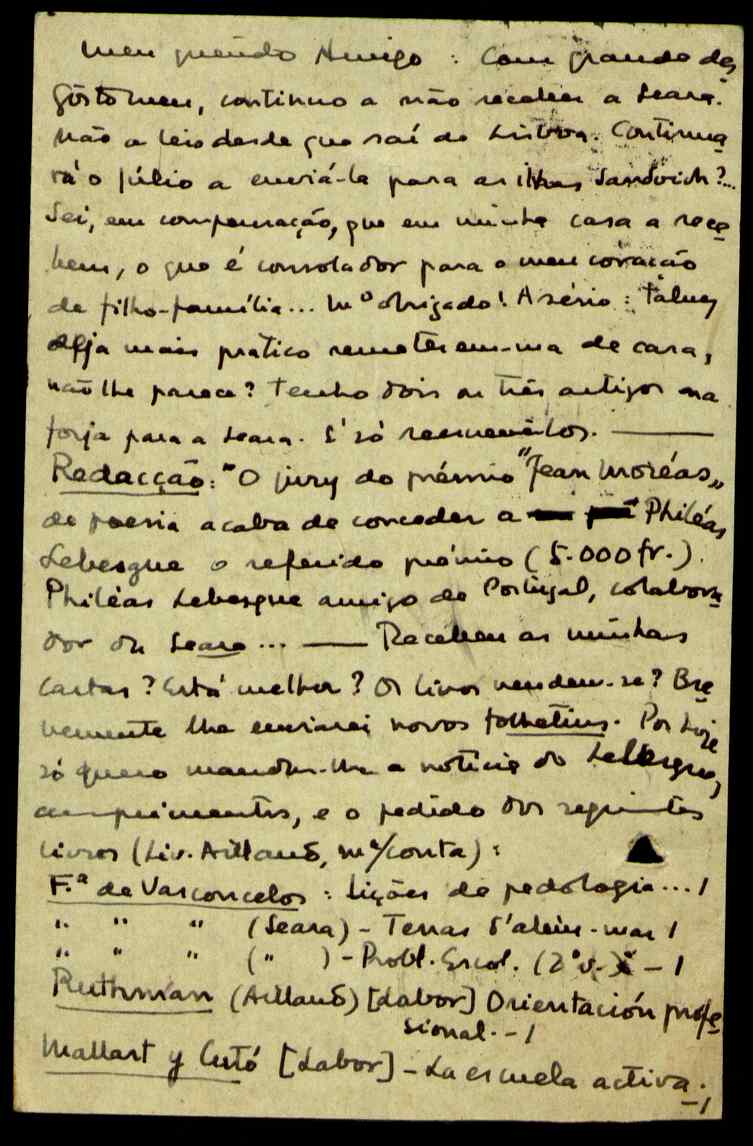 Meu querido Amigo: Com grande des
gôsto meu, continuo a não receber a Seara.
Não a leio desde que saí de Lisboa. Continua
rá o Júlio a enviá-la para as ilhas Sandwich?...
Sei, em compensação, que em minha casa a rece
bem, o que é consolador para o meu coração
de filho-família... Mº obrigado! A sério: talvez
seja mais prático remeterem-ma de casa,
não lhe parece? Tenho dois ou três artigos na
forja para a Seara. É só reescrevê-los. —
Redacção: "O jury do prémio "Jean Moréas"
de poesia acaba de conceder a Philéas
Lebesgue o referido prémio (5.000 fr.).
Philéas Lebesgue amigo de Portugal, colabora
dor da Seara... — Recebeu as minhas
cartas? Está melhor? Os livros vendem-se? Bre
vemente lhe enviarei novos folhetins. Por hoje
só quero mandar-lhe a notícia do Lebesgue,
cumprimentos, e o pedido dos seguintes
livros (Liv. Aillaud, mª/conta):
F.ª de Vasconcelos: Lições de pedologia... 1
" " " (Seara) - Terras d'além-mar 1
" " " ( " ) - Probl. Escol. (2º v.) - 1
Ruthman (Aillaud) [Labor] Orientación profe
sional. - 1
Mallart y Cutó [Labor] - La escuela activa.
- 1